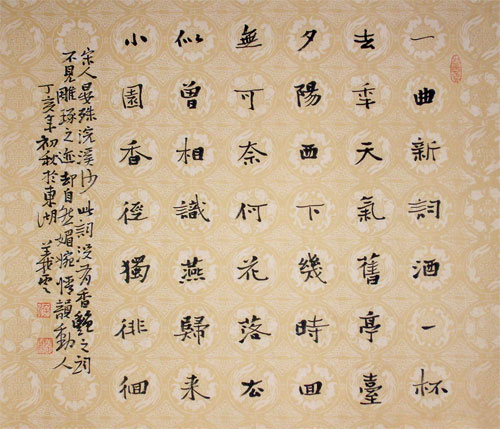 一曲新詞酒一杯
去秊天氣舊亭臺
夕陽西下幾時回
無可奈何花落去
似曾相識燕歸来
小園香徑獨徘徊
宋人晏殊浣溪沙此詞没有香艷之詞
不見雕琢之迹却自然媚婉情韻動人
丁亥年初秋於東湖 義雲